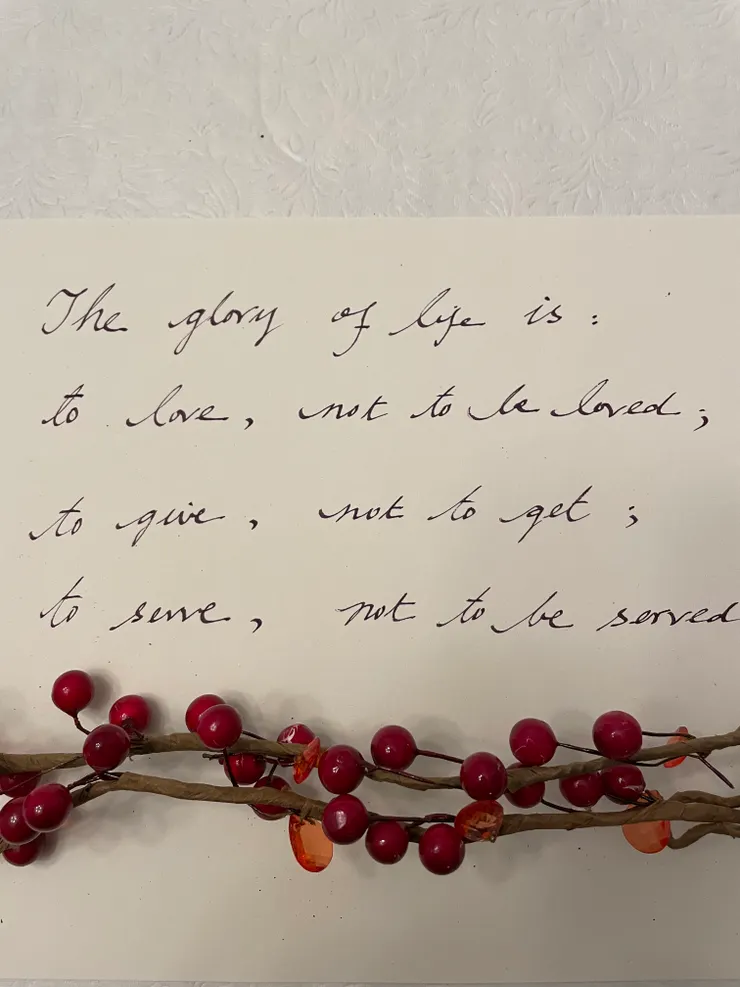 The glory of life is:
to love, not to be loved;
to give, not to get;
to serve, not to be served